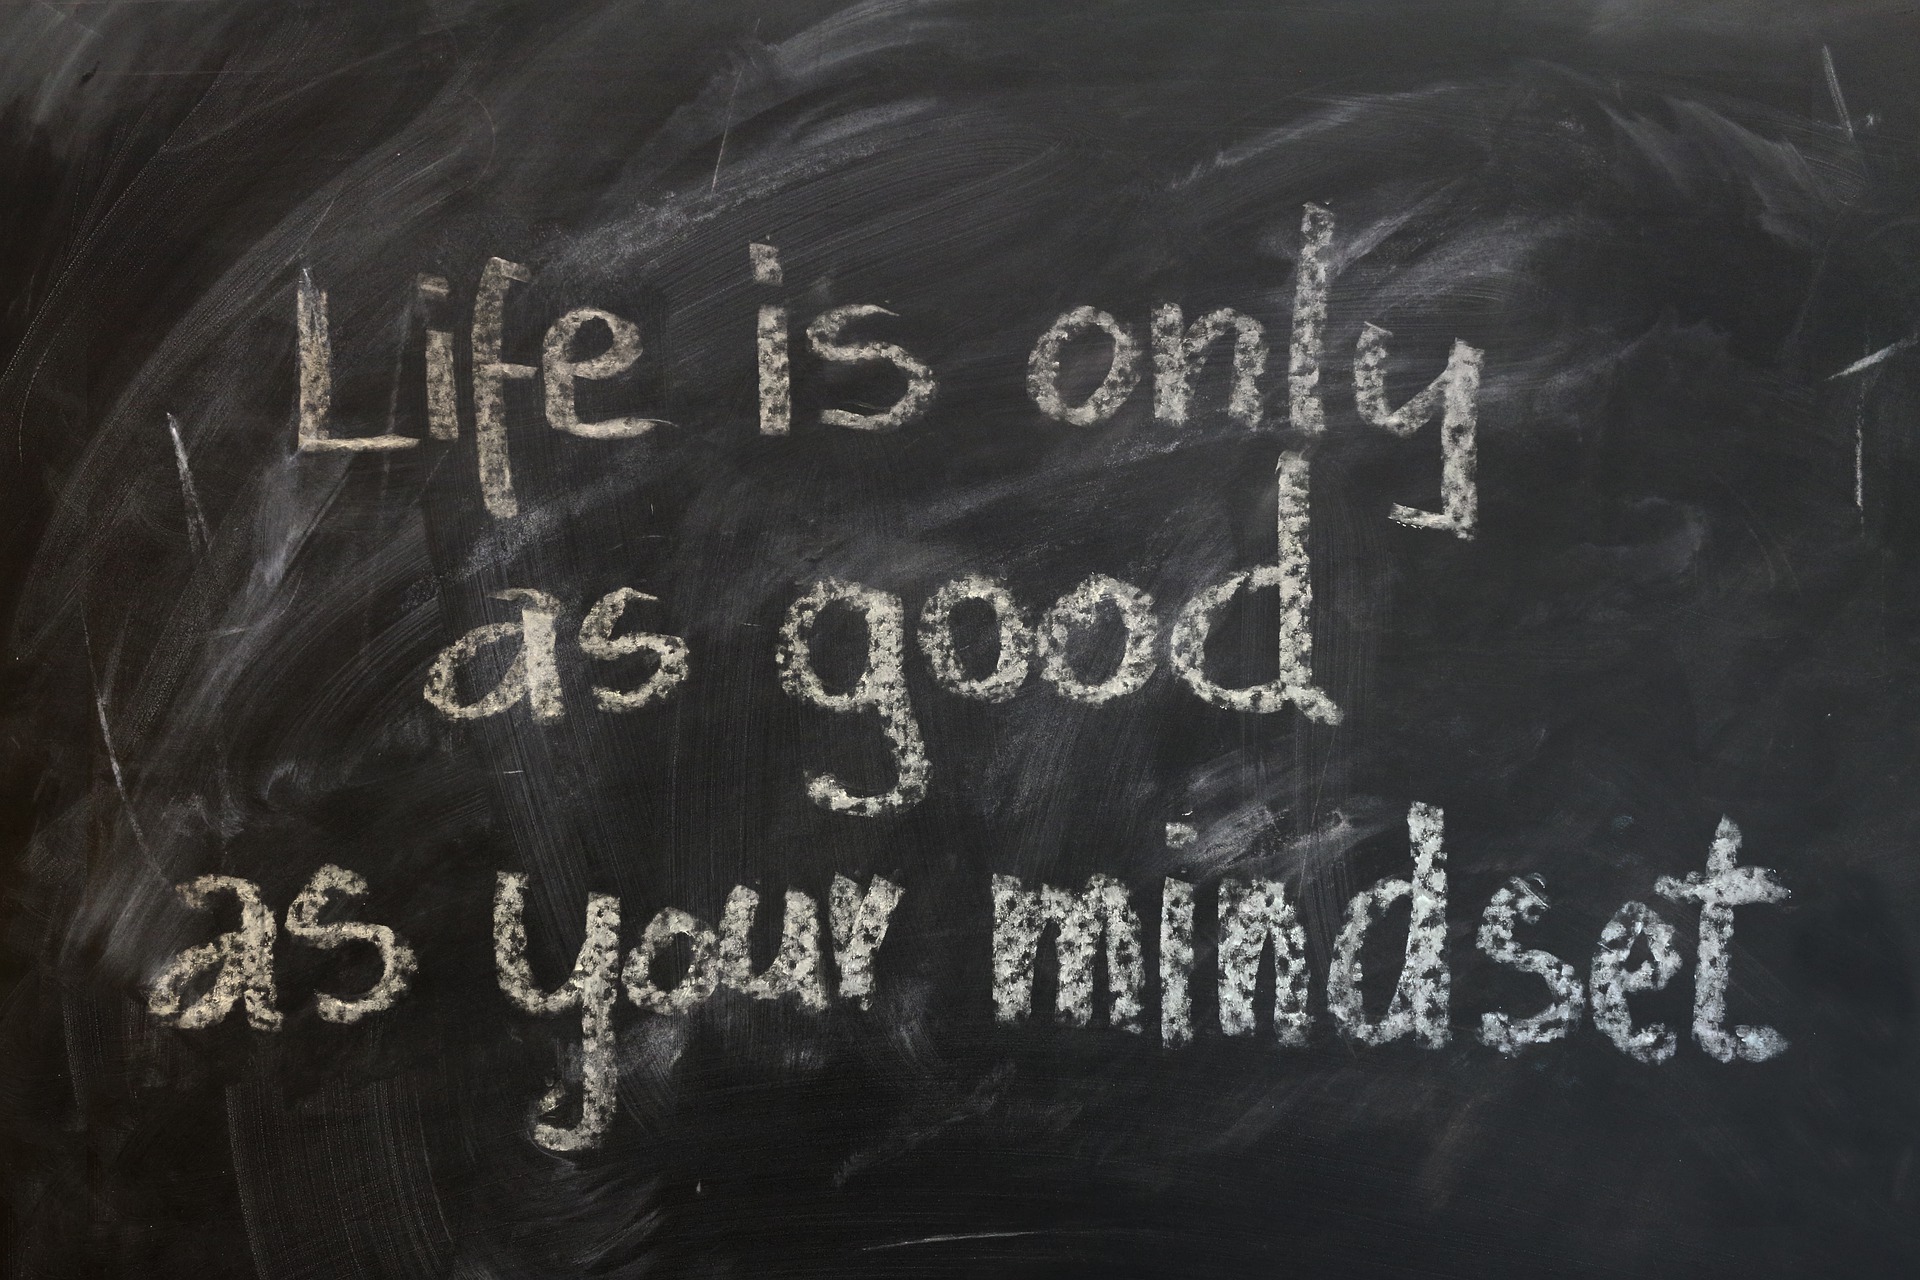 Life is only
as good
as your mindset